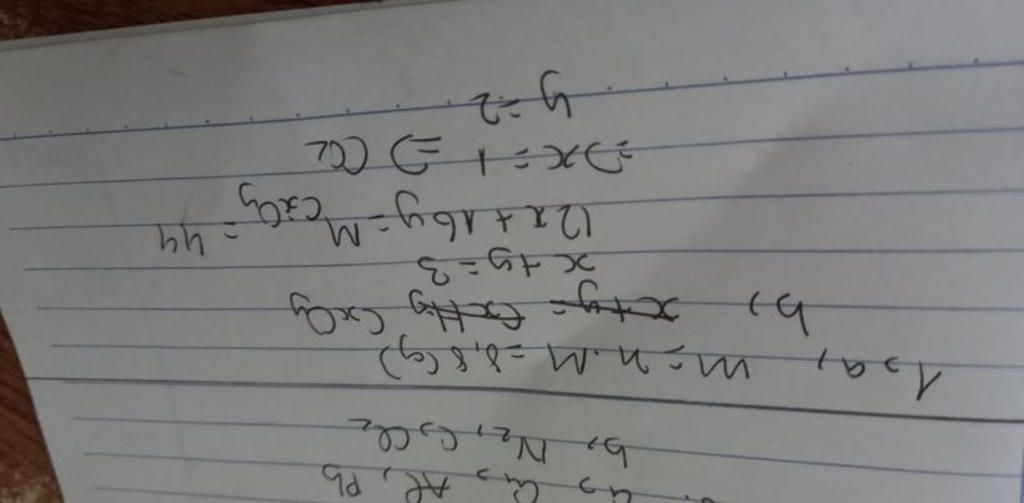 a, Cu, Al, Pb
b, N₂, C, Cl₂
1, a, m = n.M = 8,8(g)
b, x+y= CxHy CxOy
x+y=3
12x + 16y = M CxOy = 44
=> x = 1 => CO₂
y = 2